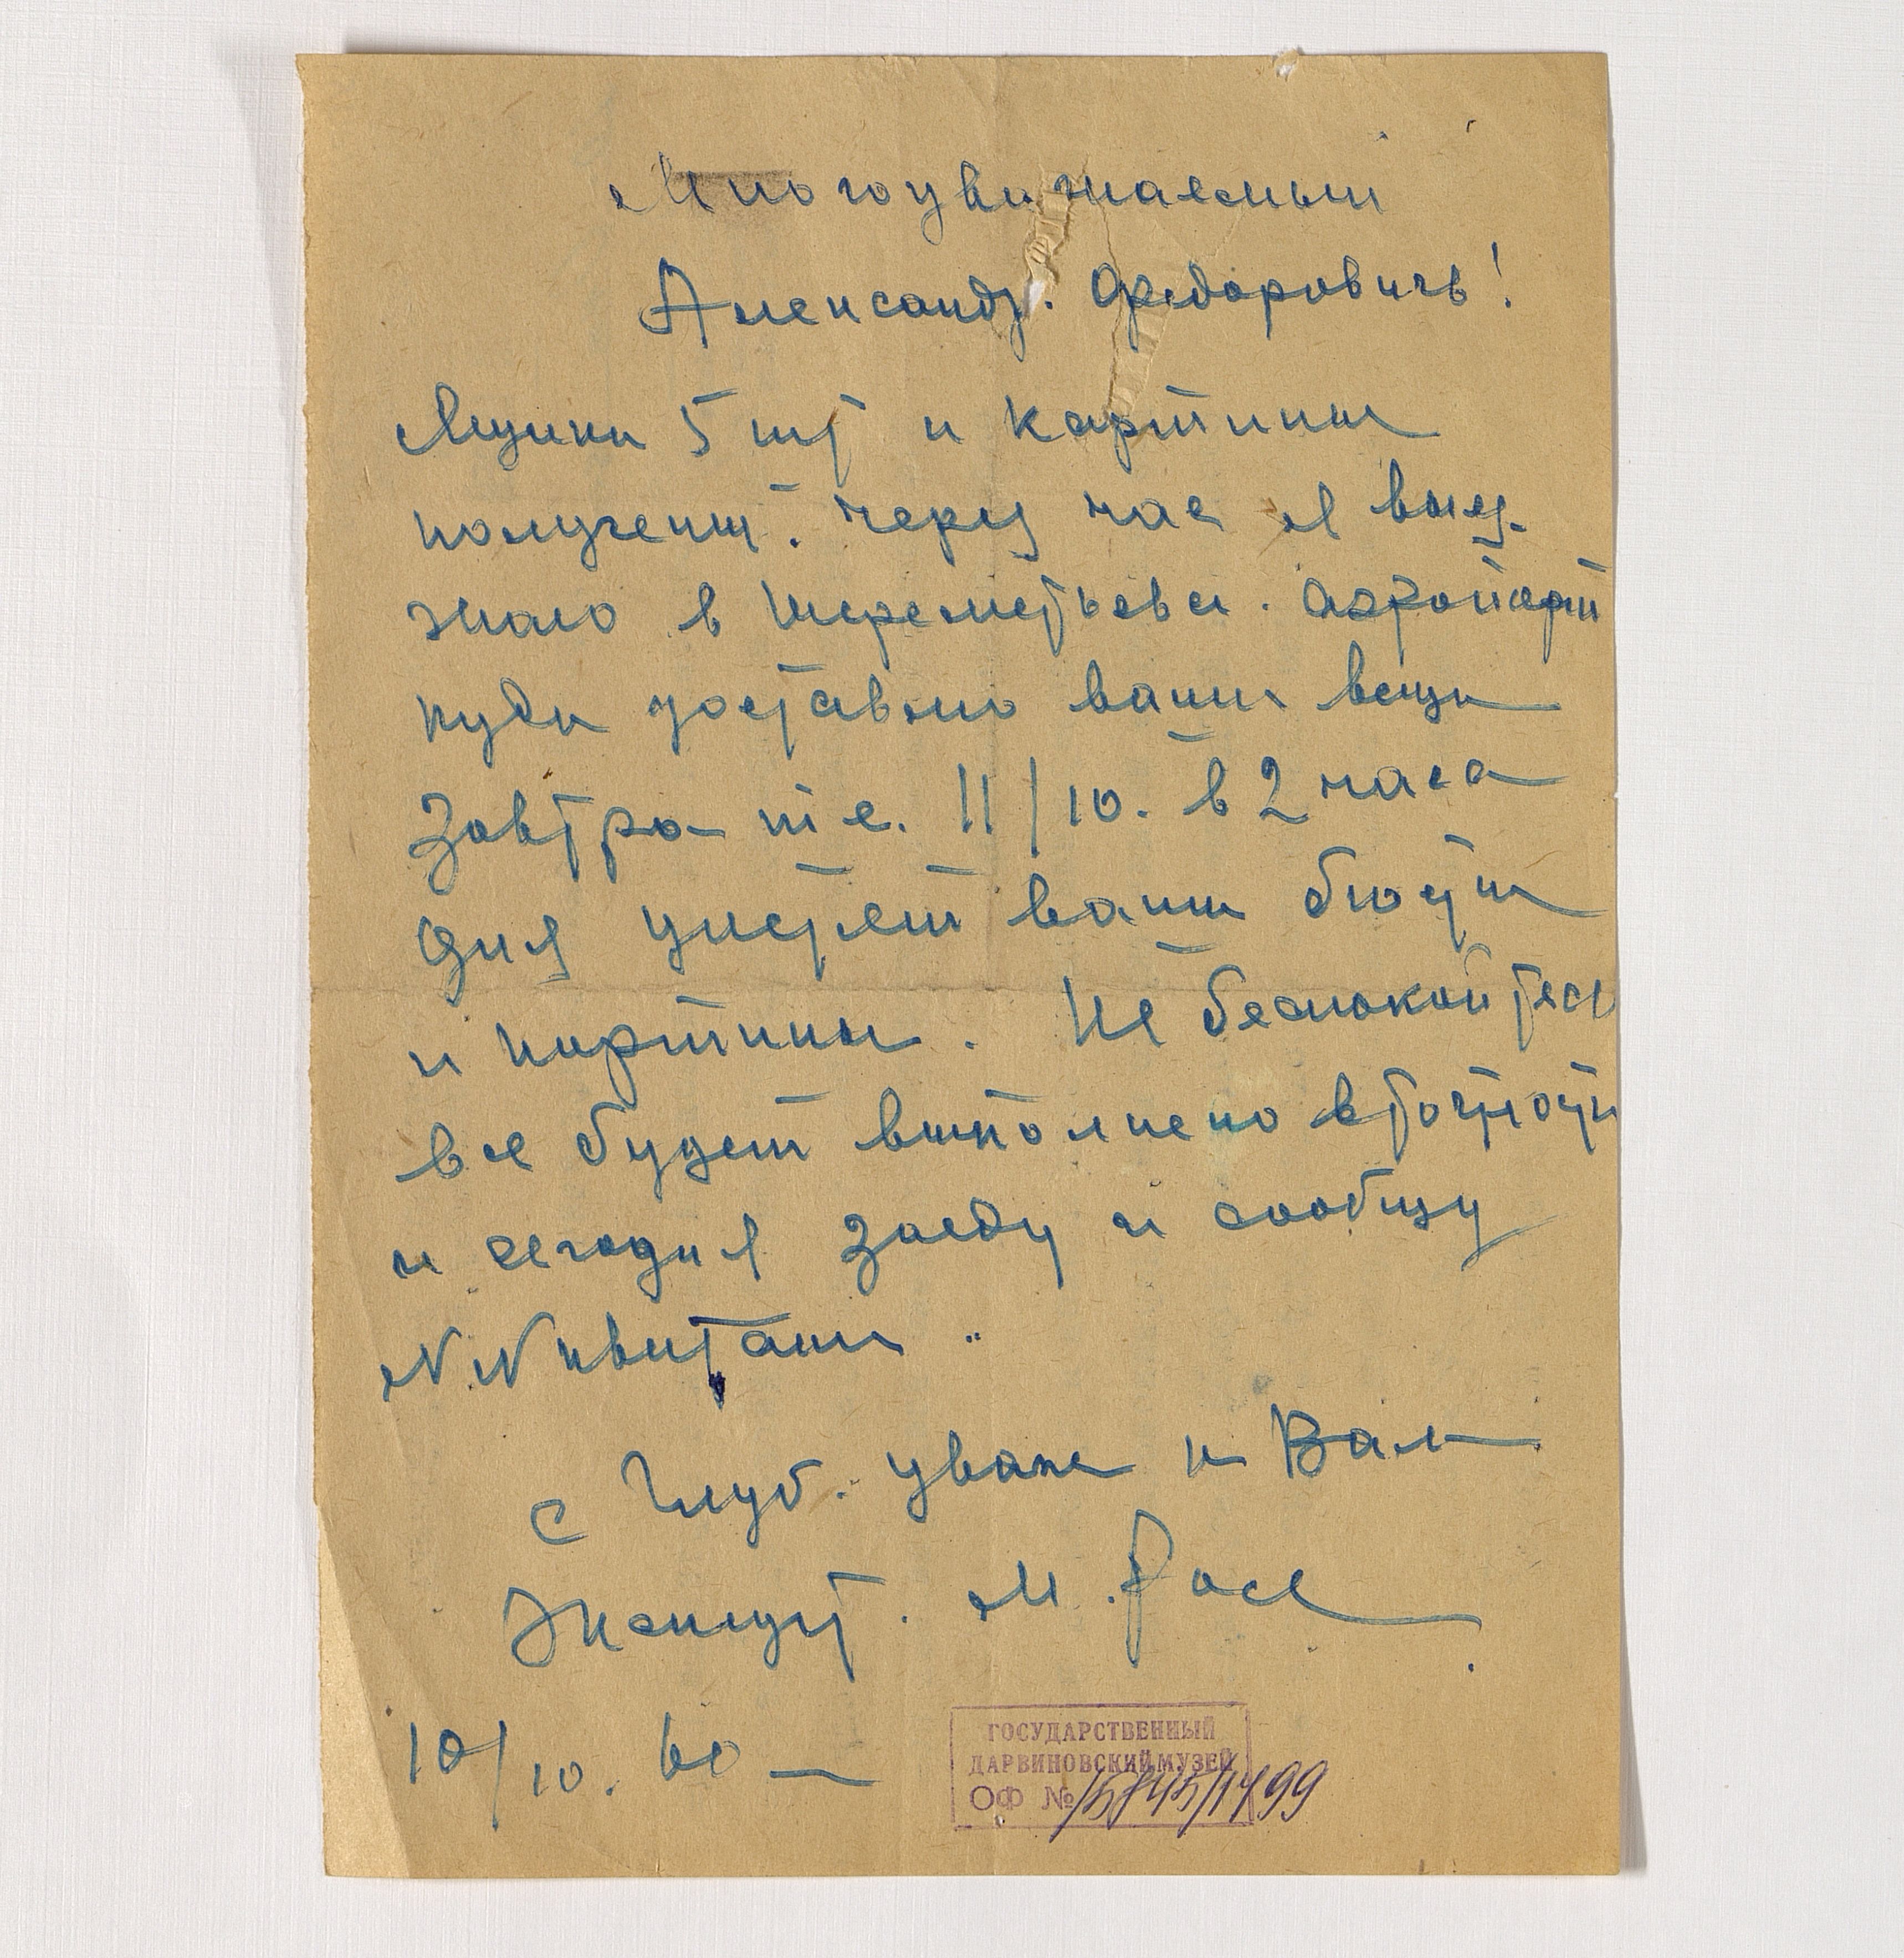 Многоуважаемый
Александр. Федорович!
Ящики 5 шт и картины
получены. через час я выез-
жаю в Шереметьева. Аэропорт
куда доставлю ваши вещи
Завтра т е. 11/10. в 2 часа
дня улетят ваши бюсты
и картины. Не беспокойтесь
все будет выполнено в точности
и сегодня заеду и сообщу
№№ квитанц
с глуб. уваже к Вам
М. Росс
10/10. 60
ГОСУДАРСТВЕННЫЙ
ДАРВИНОВСКИЙ МУЗЕЙ
ОФ №